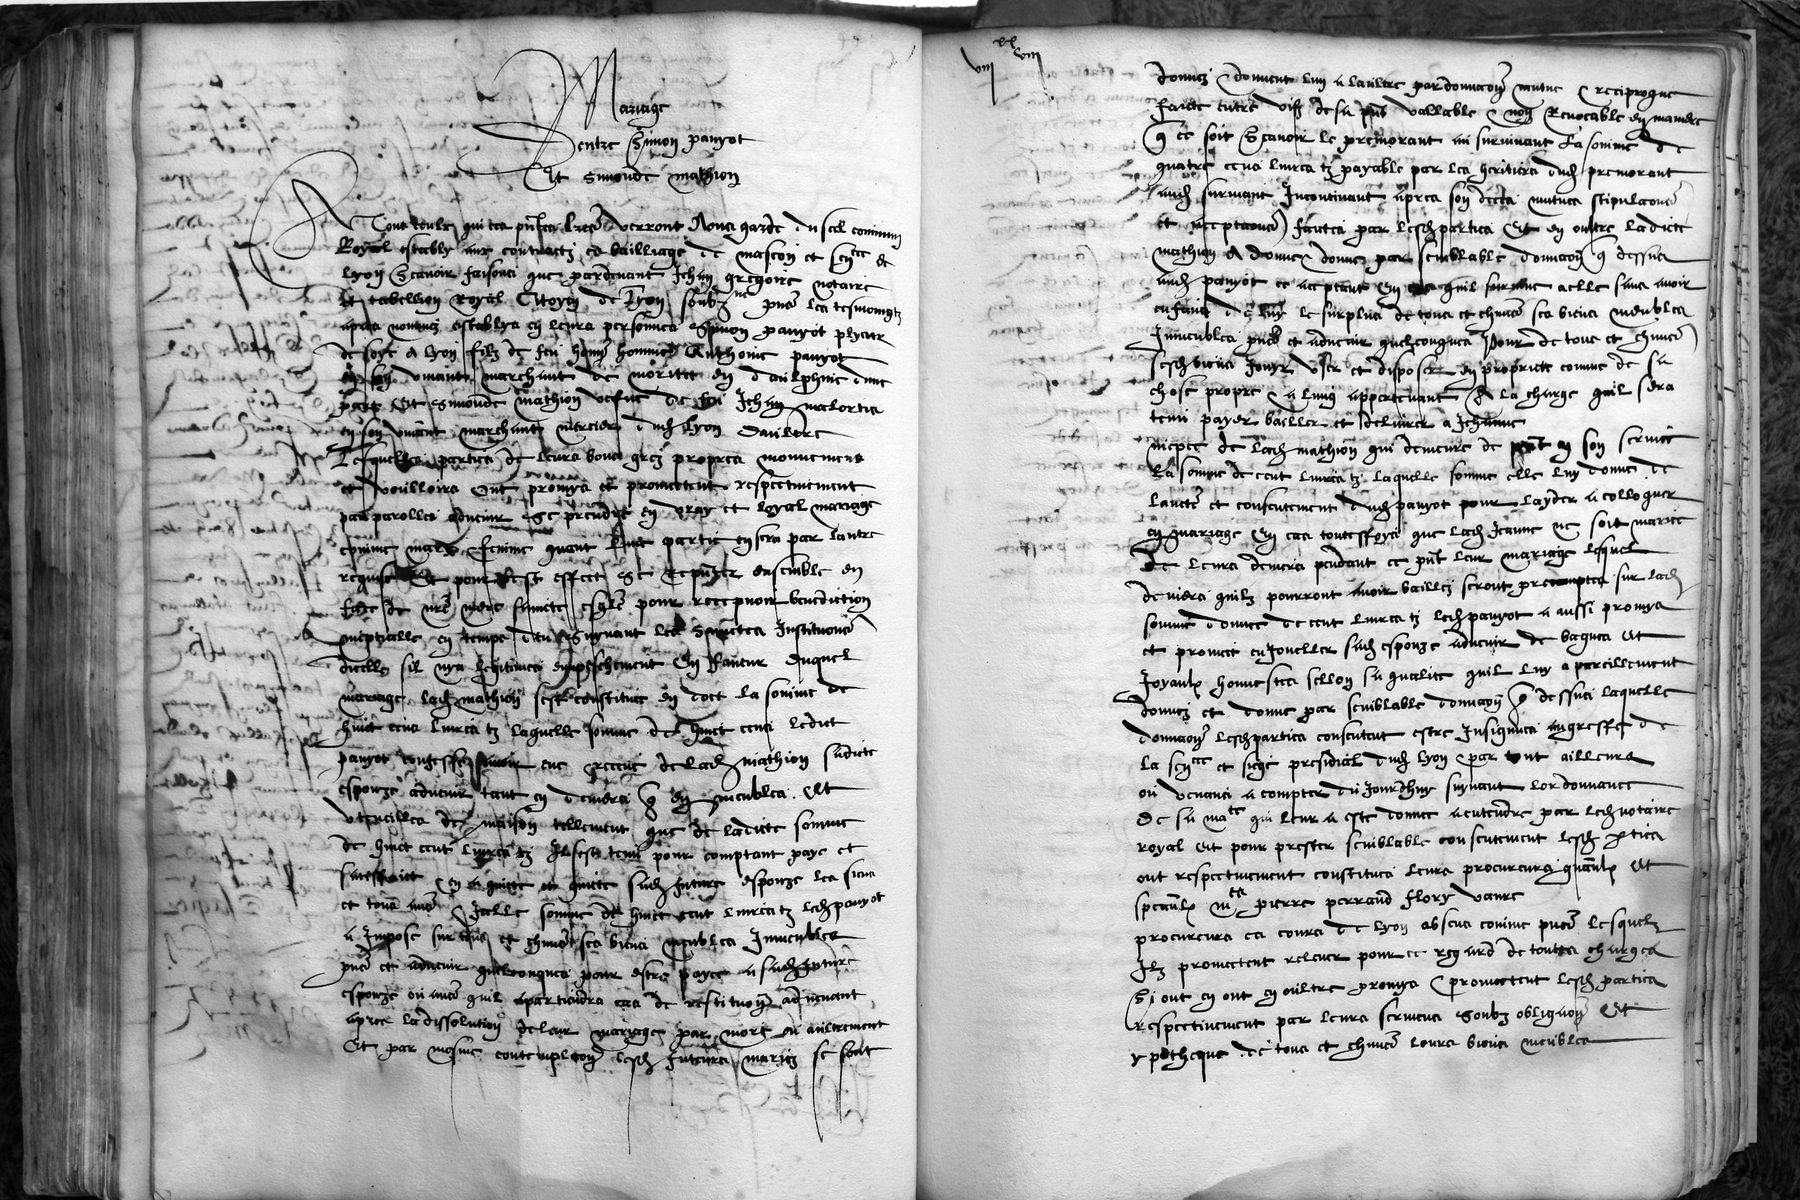 Mariage
Dentre Simon panyot
Et Simonde mathion
A Tous ceulx qui ces pntes lres verront Nous garde du scel commun
Royal estably aux contractz es bailliage de mascon et senes de
lyon Scavoir faisons que pardevant Jehan gregoire notaire
et tabellion Royal Citoyen de lyon soubzne pnes les tesmoingtz
apres nommez establys en leurs personnes Simon panyot
de soye a lyon filz de feu honnes homme Anthonie panyot
en son vivant marchant de en daulphine dune
part Et Simonde mathion vefve de feu Jehan malortia
en son vivant marchant mercier dud lyon Daultre
Lesquelles parties de leurs bons grez propres mouvemens
et voulloirs Ont promys et promectent respectivement
par parolles advenir Se prendre en vray et loyal mariage
comme mary & femme quant lune partie en sera par lautre
requise Et pour cest effect Se Repnter ensemble en
face de nre mere saincte esglise pour recepvoir benediction
nuptialle en temps deu suyvant les sainctes Institutions
dicelle sil nya legitimes empeschement En faveur duquel
mariage lad mathion sest constituee en doct la somme de
huict cens livres tz laquelle somme de huict cens ledict
panyot confesse avoir eue & receue de lad mathion sadicte
espouze advenir tant en deniers q en meubles Et
utencilles de maison tellement que de ladicte somme
de huict cent livres tz Il sest tenu pour comptant paye et
satisfaict en a quicte et quicte sad future espouze les siens
et tous aues Jcelle somme de huict cent livres tz led panyot
a Impose sur tous et chuns ses biens meubles Inmeubles
pns et advenir quelconques pour estre payee a sad future
espouze ou aues quil apartiendra cas de restitution advenant
apres la dissolution de leur mariage par mort ou aultrement
Et par mesme contemplaon lesd futurs mariez se sont
viii xx viii
donnez & donnent lun a laultre par donnaon mutue & reciproque
faicte entre vifz de sa pnt vallable & non Revocable en maniere
q ce soit Scavoir le premorant au survivant La somme de
quatre cens livres tz payable par les heritiers dud premorant
aud survivant Incontinant apres son deces mutues stipulaons
et acceptaons faictes par lesd parties Et en oultre ladicte
mathion A donne & donne par semblable donnaon q dessus
aud panyot ce acceptant En cas quil survive a elle sans avoir
enfans de luy le surplus de tous et chuns ses biens meubles
Inmeubles pns et advenir quelconques Pour de tous et chuns
sesd biens Jouyr User et disposer en propriete comme de sa
chose propre & a luy appertenant A la charge quil sera
tenu payer bailler et delivrer a Jehanne
niepce de lad mathion qui demeure de pnt en son service
La somme de cent livres tz laquelle somme elle luy donne de
lauctes et consentement dud panyot pour layder a colloquer
en mariage En cas touteffoys que lad Jeanne ne soit mariee
De leurs deniers pendant ce pnt leur mariage lesquel
deniers quilz pourront avoir baillez seront precomptez sur lad
somme donnee de cent livres tz led panyot a aussi promys
et promect enjoueller sad espouze advenir de bagues Et
Joyaulx honnestes sellon sa qualite quil luy a pareillement
donnez et donne par semblable donnaon q dessus laquelle
donnaon lesd parties consentent estre Insignuee au greffes de
la senes et siege presidial dud lyon & par tout ailleurs
ou venans a compter du Jourdhuy suyvant lordonnance
De sa mate qui leur a este donne a entendre par led notaire
royal Et pour prester semblable consentement lesd parties
ont respectivement constitues leurs procureurs gnaulx Et
speaulx mes pierre perraud flory vanre
procureurs es cours de lyon absens comme pns lesquelz
Ilz promectent relever pour ce regard de toutes charges
Si ont en ont en oultre promys & promectent lesd parties
respectivement par leurs sermens Soubz obligaon Et
ypotheque de tous et chuns leurs biens meubles